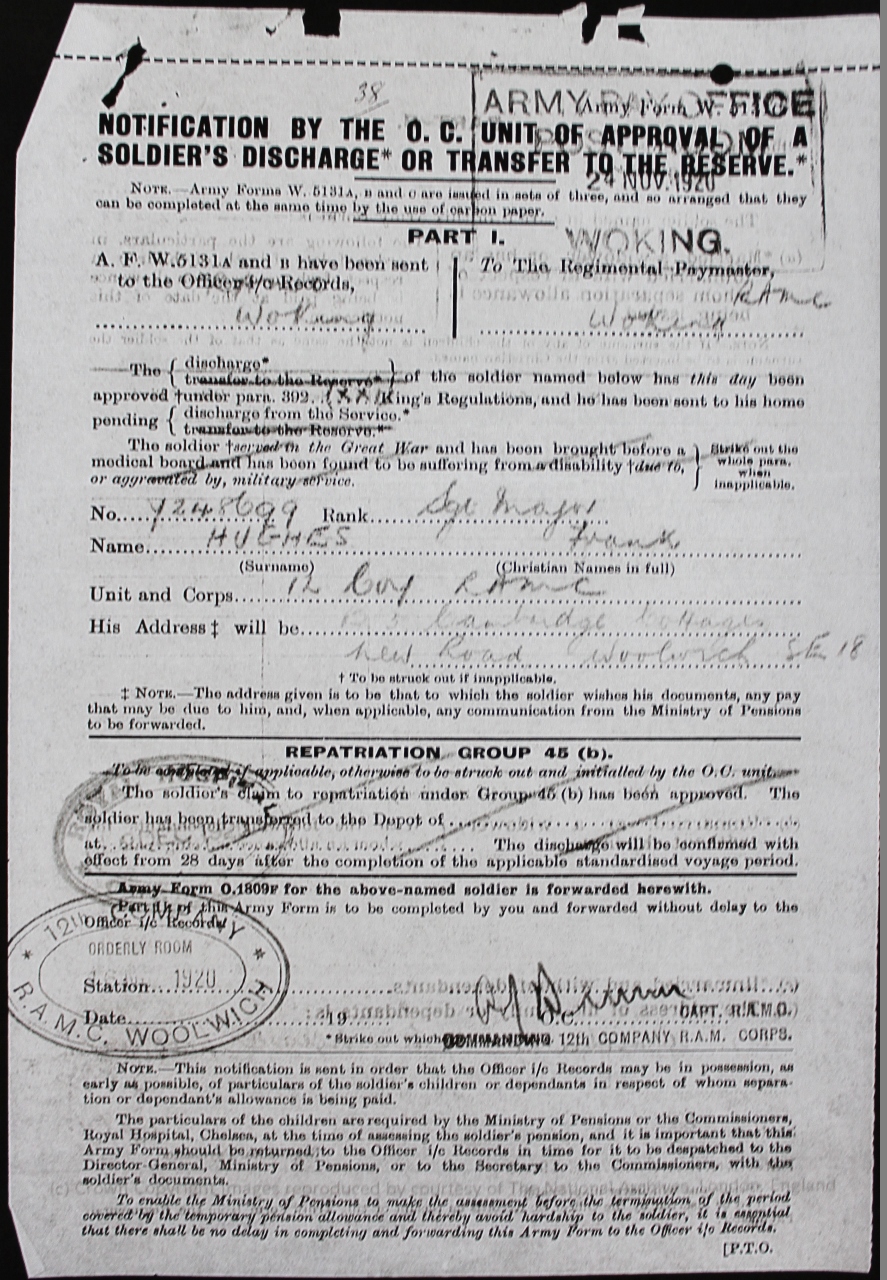 38
ARMY PAY OFFICE
Army Form W. 5131
NOTIFICATION BY THE O. C. UNIT OF APPROVAL OF A
SOLDIER'S DISCHARGE* OR TRANSFER TO THE RESERVE.*
24 NOV. 1920
NOTE.—Army Forms W. 5131A, B and C are issued in sets of three, and so arranged that they
can be completed at the same time by the use of carbon paper.
PART I.
WOKING.
A. F. W.5131A and B have been sent
to the Officer i/c Records,
Woking
To The Regimental Paymaster,
RAMC
Woking
The { discharge*
transfer to the Reserve* } of the soldier named below has this day been
approved †under para. 392. (XXI) King's Regulations, and he has been sent to his home
pending { discharge from the Service.*
transfer to the Reserve.*
The soldier †served in the Great War and has been brought before a
medical board and has been found to be suffering from a disability †due to,
or aggravated by, military service.
} Strike out the
whole para.
when
inapplicable.
No. 7248699 Rank Sgt Major
Name HUGHES Frank
(Surname) (Christian Names in full)
Unit and Corps 12 Coy RAMC
His Address‡ will be Cambridge Cottages
New Road Woolwich SE 18
† To be struck out if inapplicable.
‡ NOTE.—The address given is to be that to which the soldier wishes his documents, any pay
that may be due to him, and, when applicable, any communication from the Ministry of Pensions
to be forwarded.
REPATRIATION GROUP 45 (b).
To be completed if applicable, otherwise to be struck out and initialled by the O.C. unit.
The soldier's claim to repatriation under Group 45 (b) has been approved. The
soldier has been transferred to the Depot of
at The discharge will be confirmed with
effect from 28 days after the completion of the applicable standardised voyage period.
Army Form O.1809F for the above-named soldier is forwarded herewith.
Part II of this Army Form is to be completed by you and forwarded without delay to the
Officer i/c Records.
12th COMPANY
ORDERLY ROOM
1920
R.A.M.C. WOOLWICH
Station
Date 19 O.C. CAPT. R.A.M.C.
*Strike out which COMMANDING 12th COMPANY R.A.M. CORPS.
NOTE.—This notification is sent in order that the Officer i/c Records may be in possession, as
early as possible, of particulars of the soldier's children or dependants in respect of whom separa-
tion or dependant's allowance is being paid.
The particulars of the children are required by the Ministry of Pensions or the Commissioners,
Royal Hospital, Chelsea, at the time of assessing the soldier's pension, and it is important that this
Army Form should be returned to the Officer i/c Records in time for it to be despatched to the
Director-General, Ministry of Pensions, or to the Secretary to the Commissioners, with the
soldier's documents.
(c) Crown images reproduced by courtesy of The National Archives, London, England
To enable the Ministry of Pensions to make the assessment before the termination of the period
covered by the temporary pension allowance and thereby avoid hardship to the soldier, it is essential
that there shall be no delay in completing and forwarding this Army Form to the Officer i/c Records.
[P.T.O.